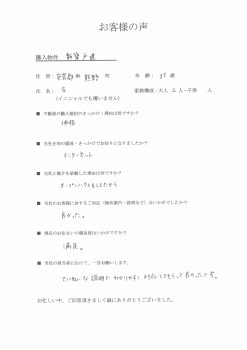 お客様の声
購入物件 新築戸建
住所：安芸郡 熊野 町 年齢：35 歳
氏名：S 家族構成：大人 2 人・子供 人
（イニシャルでも構いません）
■ 不動産の購入検討のきっかけ・理由は何ですか？
価格
■ 当社を初の媒体・きっかけでお知りになりましたか？
インターネット
■ 当社に媒介を依頼した理由は何ですか？
オープンハウスをしてたから
■ 当社のお客様に対するご対応（物件案内・説明など）はいかがでしたか？
良かった。
■ 現在のお住まいの満足度はいかがですか？
満足。
■ 当社の担当者にむけて、一言お願いします。
ていねいな説明で わかりやすく 対応してもらって 良かったです。
お忙しい中、ご回答頂きまして誠にありがとうございました。